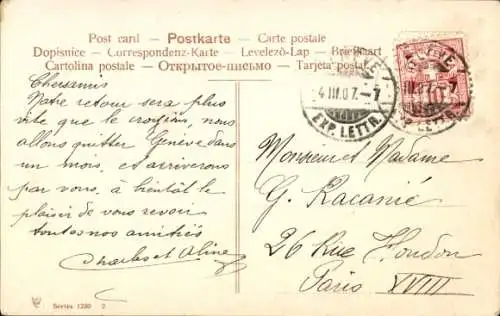 Post card – Postkarte – Carte postale
Dopisnice – Correspondenz-Karte – Levelezö-Lap – Briefkaart
Cartolina postale – Открытое-письмо – Tarjeta postal
4 III 07. – 7
EXP. LETTR.
Chers amis
Notre retour sera plus
vite que le croyions, nous
allons quitter Genève dans
un mois, et arriverons
par vous, à bientôt le
plaisir de vous revoir
toutes nos amitiés
Charles et Aline
Monsieur et Madame
G. Racanié
26 Rue Houdon
Paris XVIII
Series 1230 2